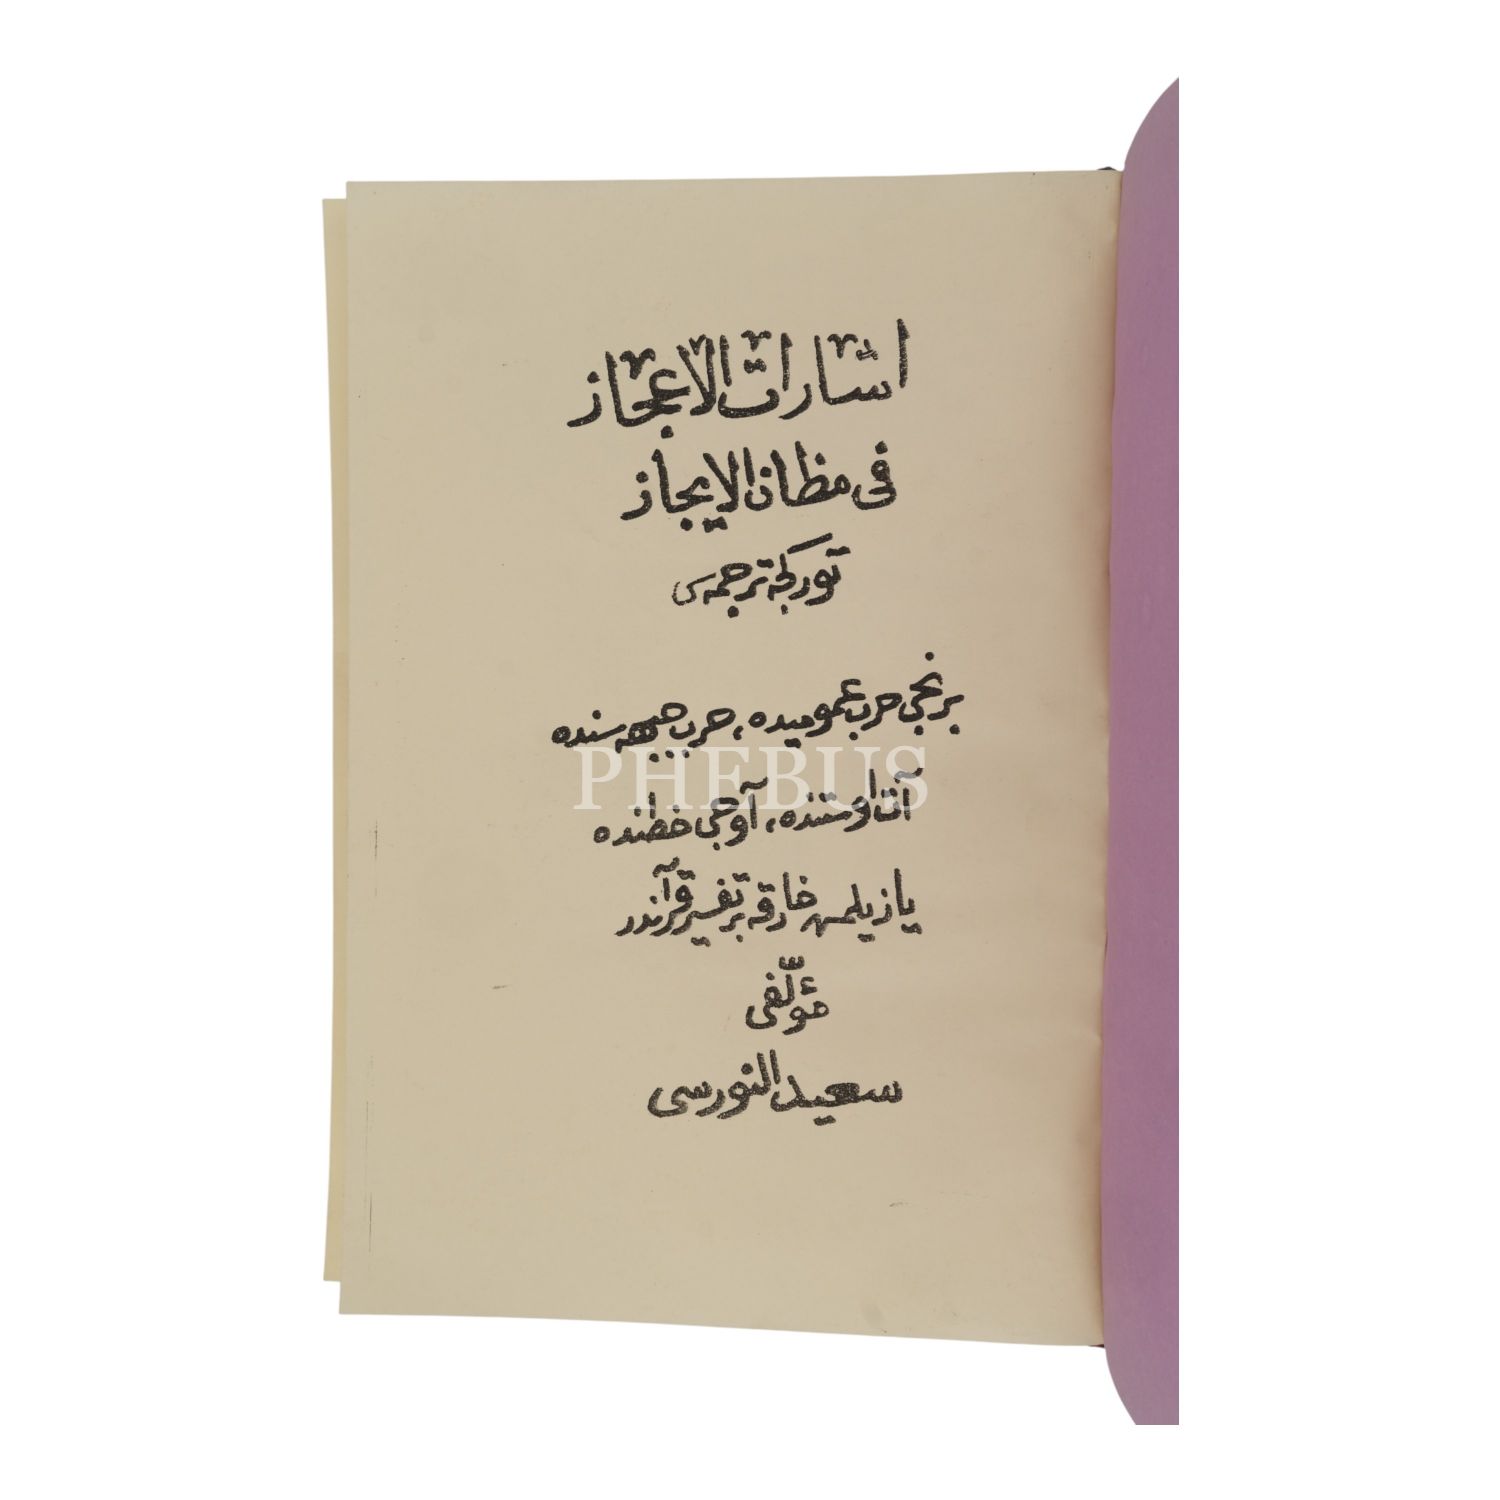 اشارات الاعجاز
فى مظان الايجاز
تورکجه ترجمه‌سی
برنجى حرب عموميده، حرب جبهه سنده
آت اوستنده، آوجى خطنده
يازيلمش خارقه بر تفسير قرآندر
مؤلّفى
سعيد النورسى
PHEBUS